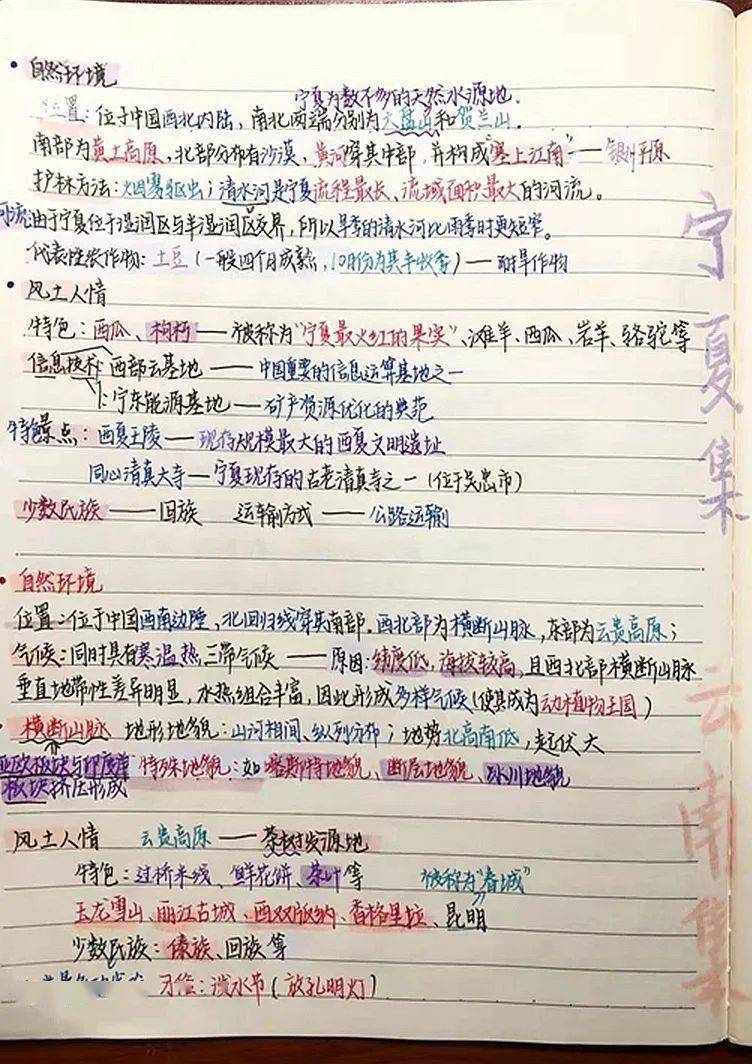 自然环境
宁夏为数不多的天然水源地.
位置：位于中国西北内陆，南北两端分别为六盘山和贺兰山。
南部为黄土高原，北部分布有沙漠，黄河穿其中部，并构成"塞上江南"—银川平原
护林方法：烟雾驱虫；清水河是宁夏流程最长、流域面积最大的河流。
河流由于宁夏位于湿润区与半湿润区交界，所以旱季的清水河比雨季时更短窄。
代表性农作物：土豆（一般四个月成熟，10月份为其丰收季）— 耐旱作物
风土人情
特色：西瓜、枸杞——被称为"宁夏最火红的果实"、滩羊、西瓜、岩羊、骆驼等
信息技术：西部云基地——中国重要的信息运算基地之一
宁东能源基地——矿产资源优化的典范
特色景点：西夏王陵——现存规模最大的西夏文明遗址
同心清真大寺—宁夏现存的古老清真寺之一（位于吴忠市）
少数民族——回族 运输方式——公路运输
宁夏集
自然环境
位置：位于中国西南边陲，北回归线穿其南部。西北部为横断山脉，东部为云贵高原；
气候：同时具有寒温热三带气候——原因：纬度低，海拔较高，且西北部横断山脉
垂直地带性差异明显，水热组合丰富，因此形成多样气候（使其成为动植物王国）
横断山脉 地形地貌：山河相间、纵列分布；地势北高南低，起伏大
亚欧板块与印度洋 特殊地貌：如喀斯特地貌、断层地貌、冰川地貌
板块挤压形成
风土人情 云贵高原——茶树发源地
特色：过桥米线、鲜花饼、茶叶等 被称为"春城"
玉龙雪山、丽江古城、西双版纳、香格里拉、昆明
少数民族：傣族、回族等
习俗：泼水节（放孔明灯）
云南集